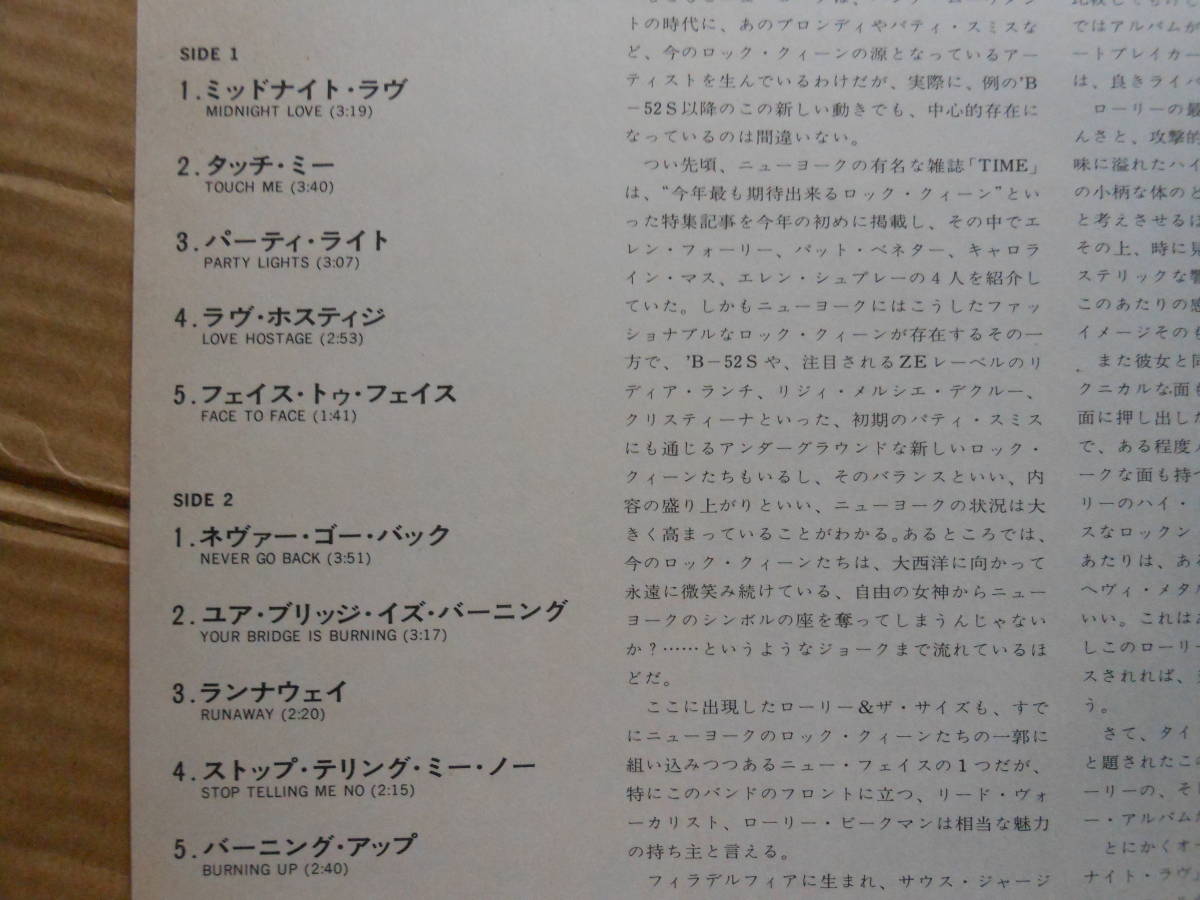 SIDE 1
1.ミッドナイト・ラヴ
MIDNIGHT LOVE (3:19)
2.タッチ・ミー
TOUCH ME (3:40)
3.パーティ・ライト
PARTY LIGHTS (3:07)
4.ラヴ・ホスティジ
LOVE HOSTAGE (2:53)
5.フェイス・トゥ・フェイス
FACE TO FACE (1:41)
SIDE 2
1.ネヴァー・ゴー・バック
NEVER GO BACK (3:51)
2.ユア・ブリッジ・イズ・バーニング
YOUR BRIDGE IS BURNING (3:17)
3.ランナウェイ
RUNAWAY (2:20)
4.ストップ・テリング・ミー・ノー
STOP TELLING ME NO (2:15)
5.バーニング・アップ
BURNING UP (2:40)
トの時代に、あのブロンディやパティ・スミスな
ど、今のロック・クィーンの源となっているアー
ティストを生んでいるわけだが、実際に、例の'B
−52S以降のこの新しい動きでも、中心的存在に
なっているのは間違いない。
つい先頃、ニューヨークの有名な雑誌「TIME」
は、“今年最も期待出来るロック・クィーン”とい
った特集記事を今年の初めに掲載し、その中でエ
レン・フォーリー、パット・ベネター、キャロラ
イン・マス、エレン・シュプレーの4人を紹介し
ていた。しかもニューヨークにはこうしたファッ
ショナブルなロック・クィーンが存在するその一
方で、'B−52Sや、注目されるZEレーベルのリ
ディア・ランチ、リジィ・メルシエ・デクルー、
クリスティーナといった、初期のパティ・スミス
にも通じるアンダーグラウンドな新しいロック・
クィーンたちもいるし、そのバランスといい、内
容の盛り上がりといい、ニューヨークの状況は大
きく高まっていることがわかる。あるところでは、
今のロック・クィーンたちは、大西洋に向かって
永遠に微笑み続けている、自由の女神からニュー
ヨークのシンボルの座を奪ってしまうんじゃない
か？……というようなジョークまで流れているほ
どだ。
ここに出現したローリー&ザ・サイズも、すで
にニューヨークのロック・クィーンたちの一郭に
組い込みつつあるニュー・フェイスの1つだが、
特にこのバンドのフロントに立つ、リード・ヴォ
ーカリスト、ローリー・ビークマンは相当な魅力
の持ち主と言える。
フィラデルフィアに生まれ、サウス・ジャージ
ではアルバムが
ートブレイカー
は、良きライバ
ローリーの最
んさと、攻撃的
味に溢れたハイ
の小柄な体のと
と考えさせるに
その上、時に見
ステリックな響
このあたりの感
イメージそのも
また彼女と同
クニカルな面も
面に押し出した
で、ある程度
ークな面も持つ
リーのハイ・
スなロックン
あたりは、ある
ヘヴィ・メタル
いい。これはあ
しこのローリー
スされれば、
う。
さて、タイ
と題されたこの
ーリーの、そし
ー・アルバム
とにかくオー
ナイト・ラヴ」